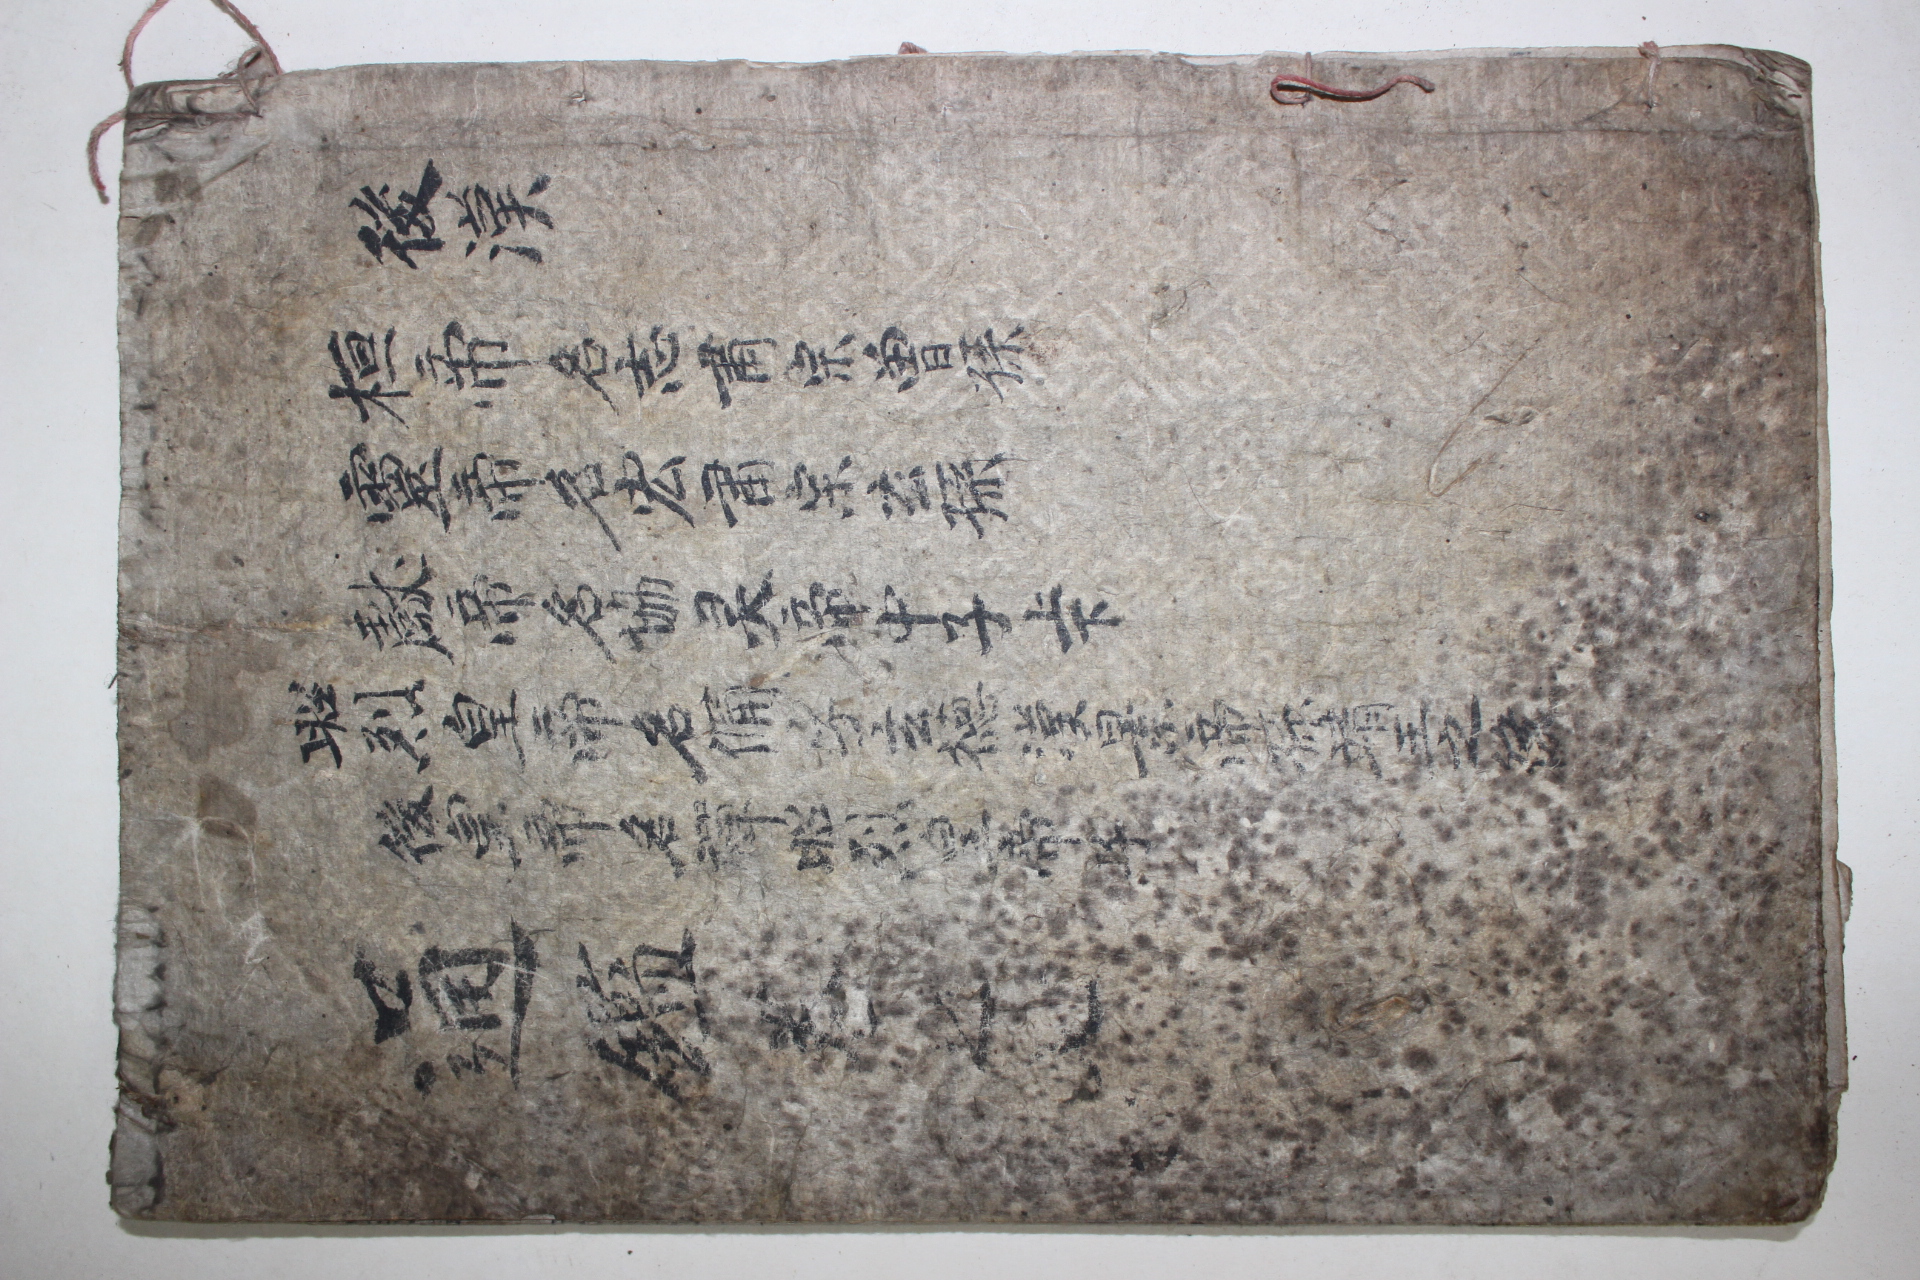 後漢
桓帝名志肅宗曾孫
靈帝名宏肅宗玄孫
獻帝名協灵帝中子
昭烈皇帝名備字玄德漢景帝 靖王之後
後皇帝名禪昭烈皇帝子
通鑑卷之